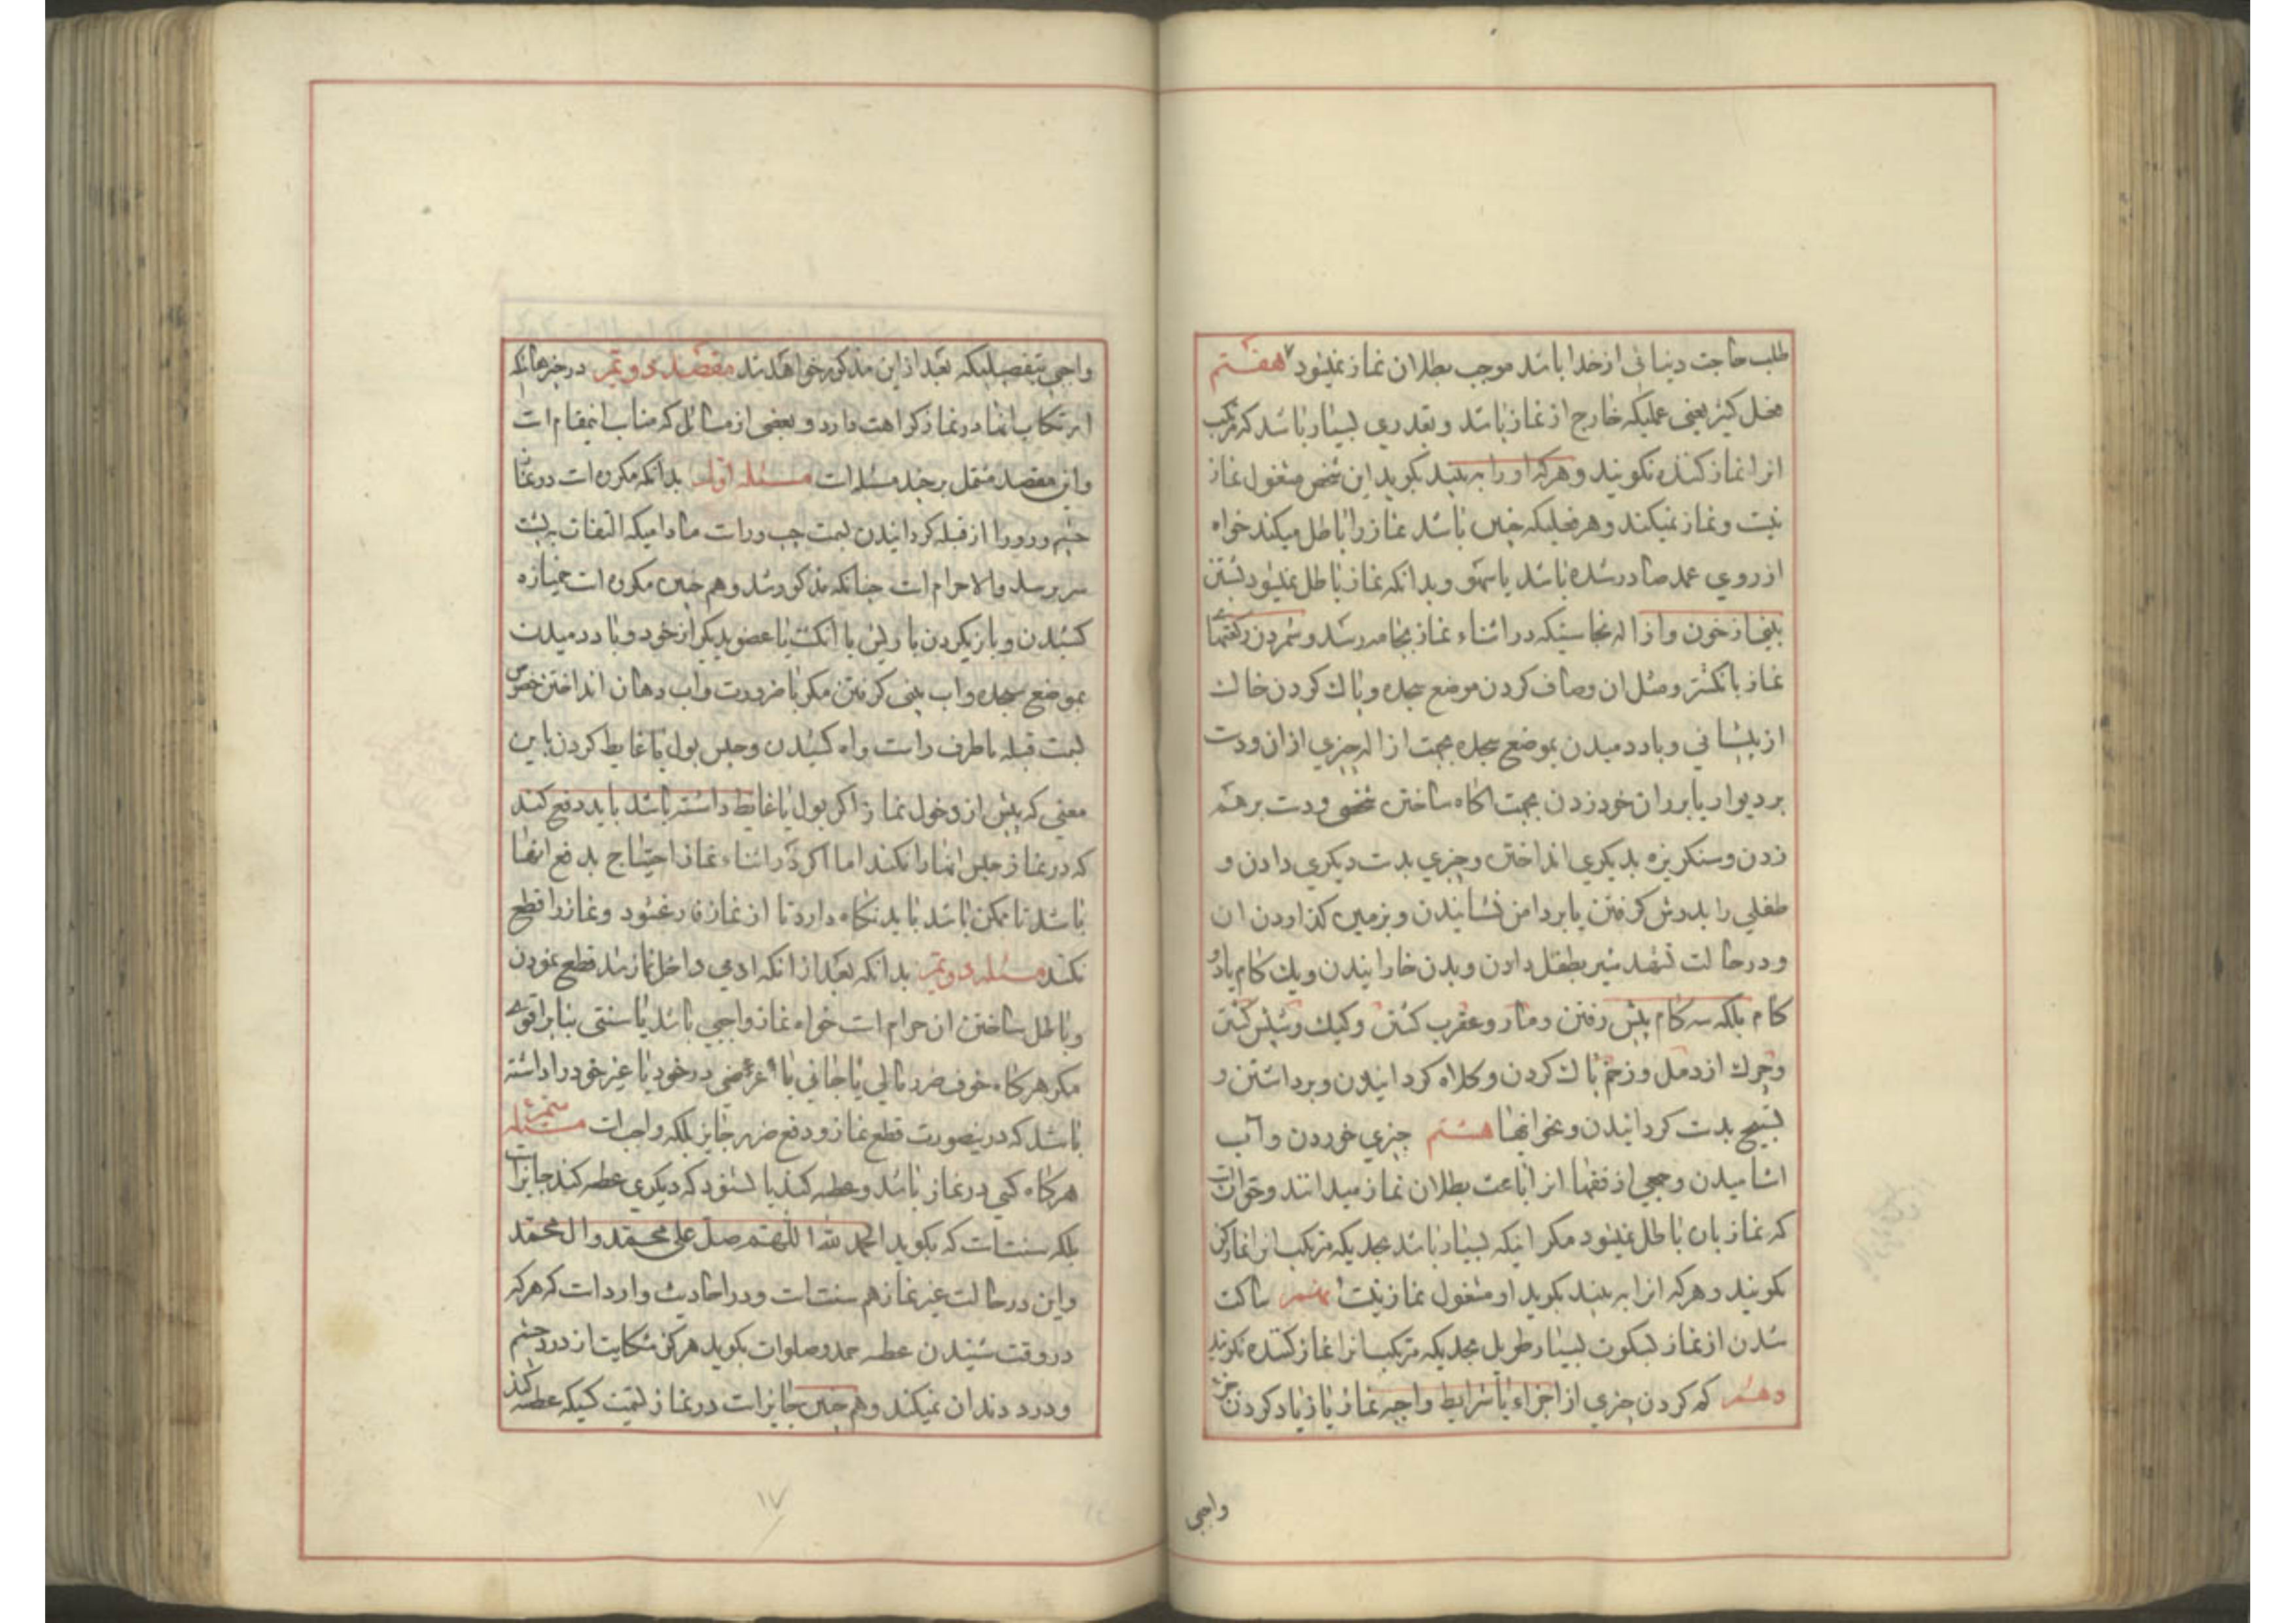 طلب حاجت دنیائی از خدا باشد موجب بطلان نماز نمیشود ۷ هفتم
فعل کثیر یعنی عملیکه خارج از نماز باشد و بقدری بسیار باشد که مرتکب
انرا نماز کننده نکویند و هرکه او را به بیند بکوید این شخص مشغول نماز
نیست و نماز نمیکند و هر فعلیکه چنین باشد نماز را باطل میکند خواه
از روی عمد صادر شده باشد یا سهو و بدانکه نماز باطل نمیشود بشستن
بینی از خون و ازاله نجاستیکه در اثناء نماز بجامه رسد و شمردن رکعتها
نماز بانکشتر و مثل ان و صاف کردن موضع سجده و پاك کردن خاك
از پیشانی و باد دمیدن بموضع سجده بجهت ازاله چیزی از ان و دست
بر دیوار یا بر ران خود زدن بجهت اکاه ساختن شخصی و دست بر هم
زدن و سنکریزه بدیکری انداختن و چیزی بدست دیکری دادن و
طفلی را بدوش کرفتن یا بر دامن نشانیدن و بزمین کذاردن ان
و در حالت تشهد شیر بطفل دادن و بدن خارانیدن و یك کام یا دو
کام بلکه سه کام پیش رفتن و مار و عقرب کشتن و کیك و شپش کشتن
و چرك از دمل و زخم پاك کردن و کلاه کردانیدن و برداشتن و
تسبیح بدست کردانیدن و نحو اینها هشتم چیزی خوردن و آب
اشامیدن و جمعی از فقها انرا باعث بطلان نماز میدانند و حق انست
که نماز بان باطل نمیشود مکر اینکه بسیار باشد بحدیکه مرتکب انرا نماز کن
نکویند و هرکه انرا به بیند بکوید او مشغول نماز نیست نهم ساکت
شدن از نماز بسکوت بسیار طویل بحدیکه مرتکب انرا نماز کننده نکویند
دهم کم کردن چیزی از اجزاء یا شرایط واجبه نماز یا زیاد کردن جزء
واجبی
واجبی بتفصیلیکه بعد از این مذکور خواهد شد مقصد دویم در چیزهائیکه
ارتکاب انها در نماز کراهت دارد و بعضی از مسائل که مناسب اینمقام است
و این مقصد مشتمل بر چند مسئله است مسئله اول بدانکه مکروه است در نماز
چشم و رو را از قبله کردانیدن بسمت چپ و راست مادامیکه التفات به پشت
سر نرسد والا حرام است چنانکه مذکور شد و هم چنین مکروه است خمیازه
کشیدن و بازیکردن با ریش یا انکشت یا عضو دیکر از خود و باد دمیدن
بموضع سجده و اب بینی کرفتن مکر با ضرورت و اب دهان انداختن خصوص
بسمت قبله یا طرف راست و اه کشیدن و حبس بول یا غایط کردن باین
معنی که پیش از دخول نماز اکر بول یا غایط داشته باشد باید دفع کند
که در نماز حبس انها را نکند اما اکر در اثناء نماز احتیاج بدفع انها
باشد تا ممکن باشد باید نکاه دارد تا از نماز فارغ شود و نماز را قطع
نکند مسئله دویم بدانکه بعد از انکه ادمی داخل نماز شد قطع نمودن
و باطل ساختن ان حرام است خواه نماز واجبی باشد یا سنتی بنابر اقوی
مکر هرکاه خوف ضرر مالی یا جانی یا عرضی در خود یا غیر خود را داشته
باشد که در ینصورت قطع نماز و دفع ضرر جایز بلکه واجب است مسئله سیم
هرکاه کسی در نماز باشد و عطسه کند یا بشنود که دیکری عطسه کند جایز است
بلکه سنت است که بکوید الحمد لله اللهم صل علی محمد و ال محمد
و این در حالت غیر نماز هم سنت است و در احادیث وارد است که هرکه
در وقت شنیدن عطسه حمد و صلوات بکوید هرکز شکایت از درد چشم
و درد دندان نمیکند و هم چنین جایز است در نماز تسمیت کسیکه عطسه کند
۱۷